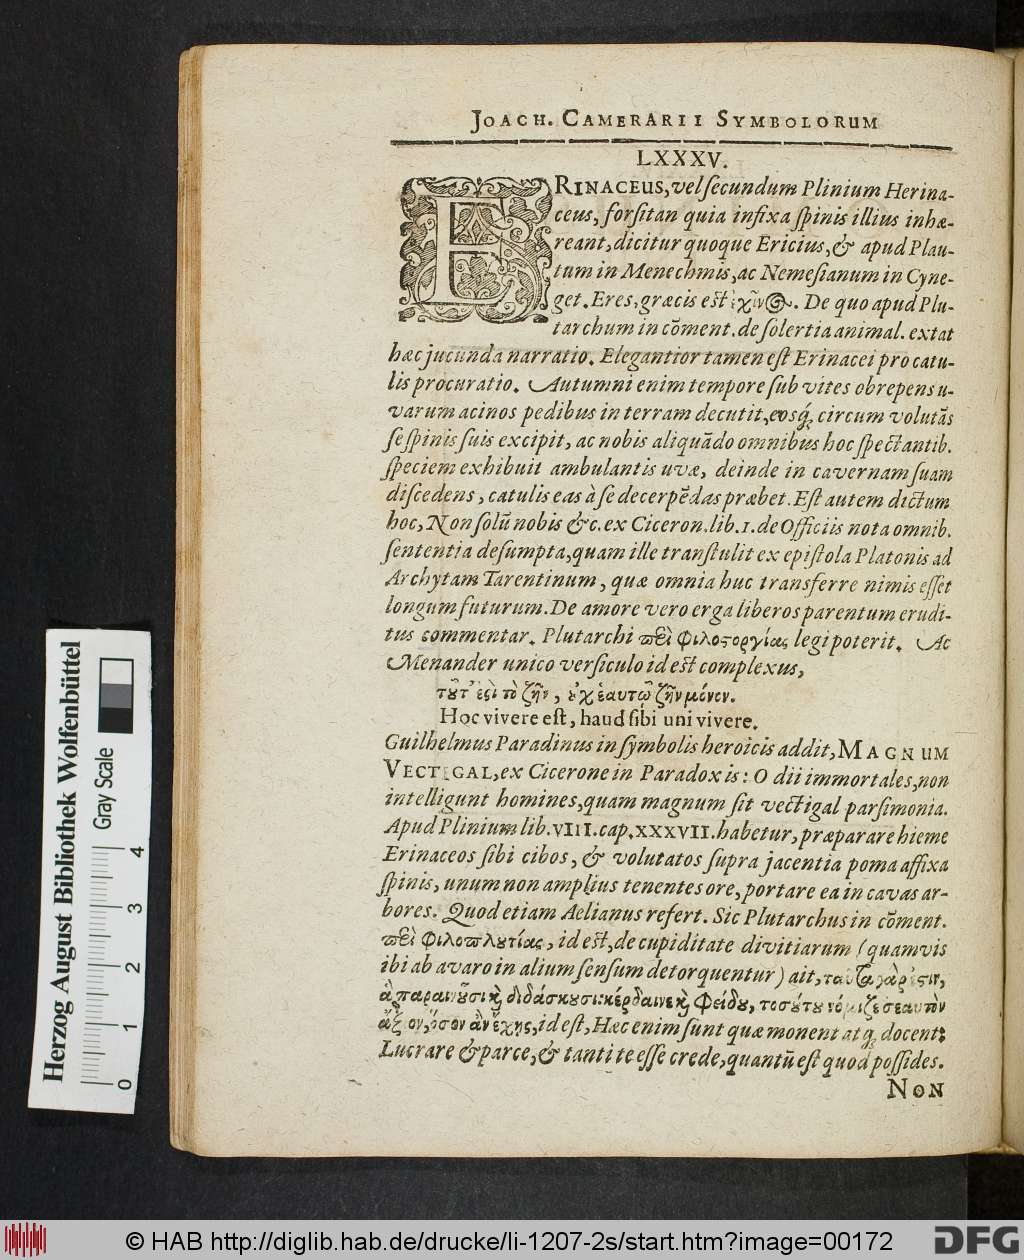 JOACH. CAMERARII SYMBOLORUM
LXXXV.
ERINACEUS, vel secundum Plinium Herina-
ceus, forsitan quia infixa spinis illius inhæ-
reant, dicitur quoque Ericius, & apud Plau-
tum in Menechmis, ac Nemesianum in Cyne-
get. Eres, græcis est ἐχῖνος. De quo apud Plu-
tarchum in cōment. de solertia animal. extat
hæc jucunda narratio. Elegantior tamen est Erinacei pro catu-
lis procuratio. Autumni enim tempore sub vites obrepens u-
varum acinos pedibus in terram decutit, eosq́; circum volutās
se spinis suis excipit, ac nobis aliquādo omnibus hoc spectantib.
speciem exhibuit ambulantis uvæ, deinde in cavernam suam
discedens, catulis eas à se decerpēdas præbet. Est autem dictum
hoc, Non solū nobis &c. ex Ciceron. lib. 1. de Officiis nota omnib.
sententia desumpta, quam ille transtulit ex epistola Platonis ad
Archytam Tarentinum, quæ omnia huc transferre nimis esset
longum futurum. De amore vero erga liberos parentum erudi-
tus commentar. Plutarchi περὶ φιλοστοργίας legi poterit. Ac
Menander unico versiculo id est complexus,
τοῦτ' ἐστὶ τὸ ζῆν, οὐχ ἑαυτῷ ζῆν μόνον.
Hoc vivere est, haud sibi uni vivere.
Guilhelmus Paradinus in symbolis heroicis addit, MAGNUM
VECTIGAL, ex Cicerone in Paradoxis: O dii immortales, non
intelligunt homines, quam magnum sit vectigal parsimonia.
Apud Plinium lib. VIII. cap. XXXVII. habetur, præparare hieme
Erinaceos sibi cibos, & volutatos supra jacentia poma affixa
spinis, unum non amplius tenentes ore, portare ea in cavas ar-
bores. Quod etiam Aelianus refert. Sic Plutarchus in cōment.
περὶ φιλοπλουτίας, id est, de cupiditate divitiarum (quamvis
ibi ab avaro in alium sensum detorquentur) ait, ταῦτα γὰρ ἐστιν,
ἃ παραινοῦσι καὶ διδάσκουσι: κέρδαινε καὶ φείδου, τοσούτου νόμιζε σεαυτὸν
ἄξιον, ὅσον ἂν ἔχῃς, id est, Hæc enim sunt quæ monent atq; docent:
Lucrare & parce, & tanti te esse crede, quantū est quod possides.
NON
Herzog August Bibliothek Wolfenbüttel
Gray Scale
0 1 2 3 4
© HAB http://diglib.hab.de/drucke/li-1207-2s/start.htm?image=00172
DFG